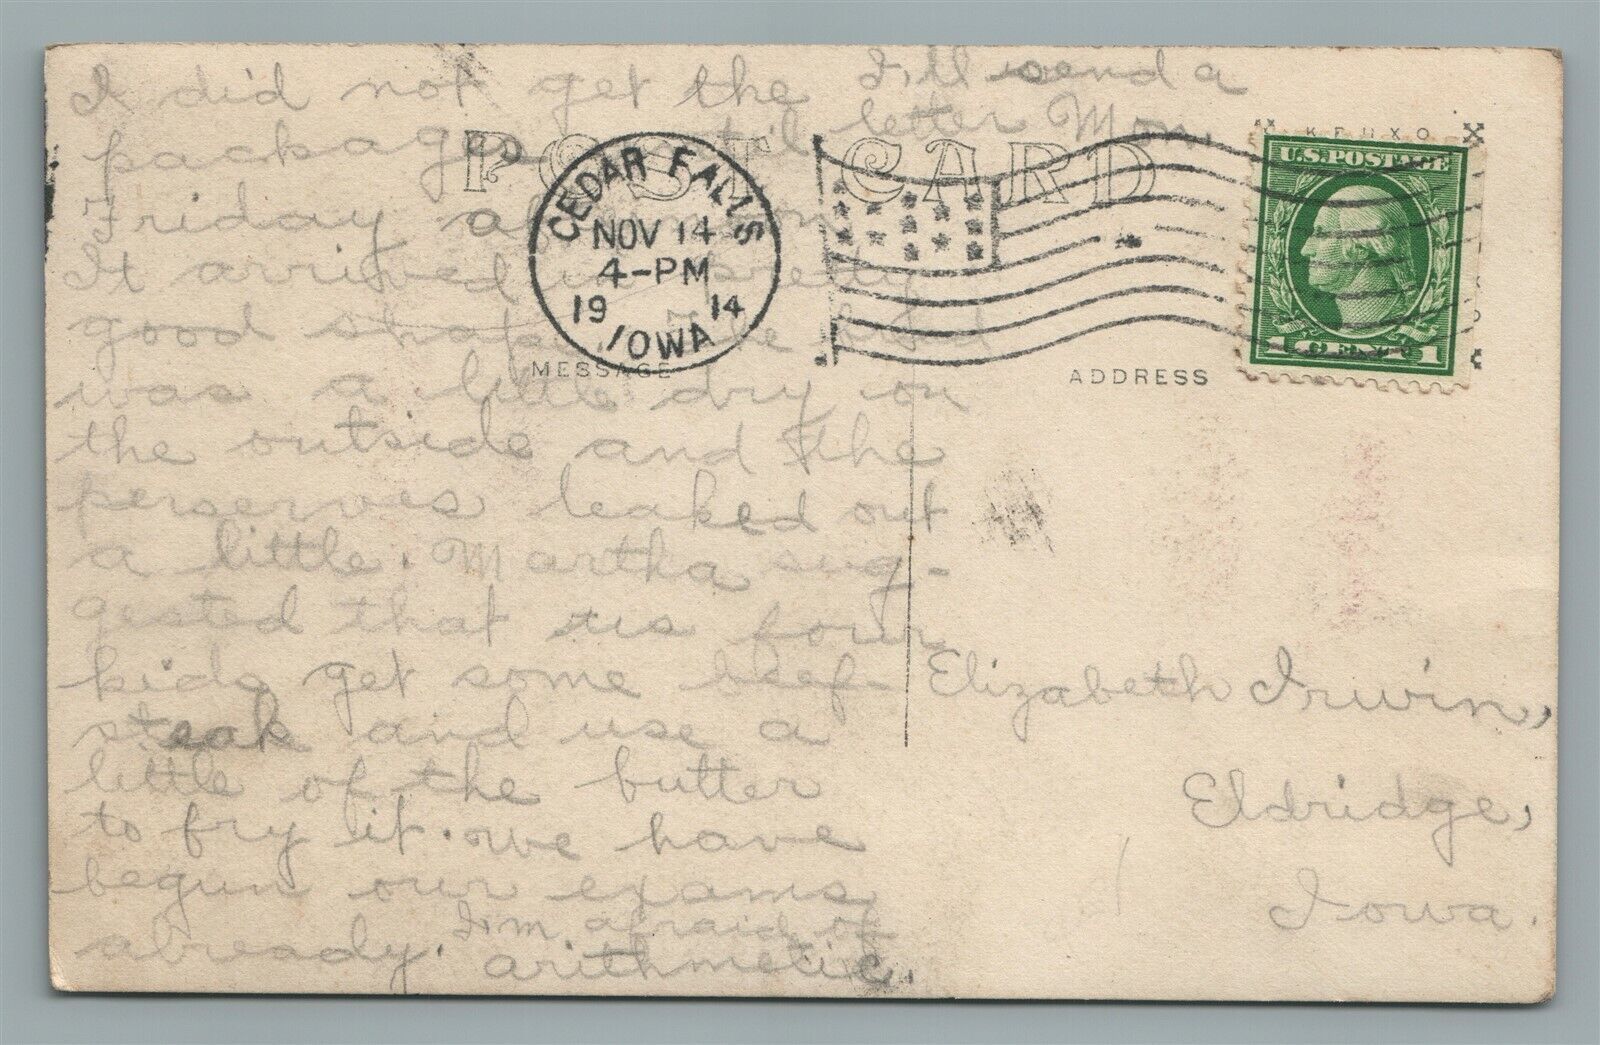 I did not get the
package until
Friday afternoon
It arrived in pretty
good shape. The
was a little dry on
the outside and the
perserves leaked out
a little. Martha sug-
gested that us four
kids get some beef-
steak and use a
little of the butter
to fry it. we have
begun our exams
already. I'm afraid of
arithmetic.
I'll send a
letter Mon.
POST CARD
CEDAR FALLS
NOV 14
4-PM
19 14
IOWA
MESSAGE
ADDRESS
KRUXO
U.S. POSTAGE
1 CENT 1
Elizabeth Irwin,
Eldridge,
Iowa.